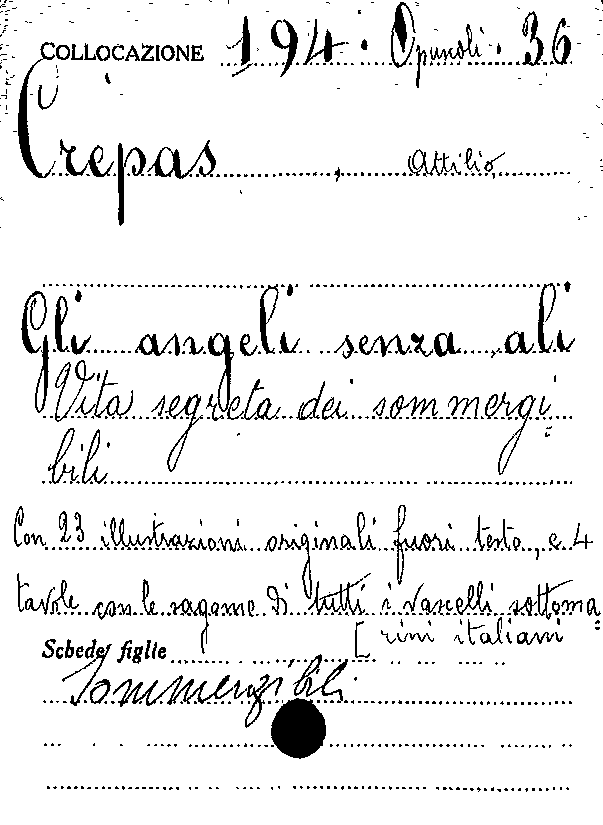 COLLOCAZIONE 194. Opuscoli. 36
Crepas, Attilio
Gli angeli senza ali
Vita segreta dei sommergi
bili
Con 23 illustrazioni originali fuori testo, e 4
tavole con le sagome di tutti i vascelli sottoma
[rini italiani
Schede figlie
Sommergibili